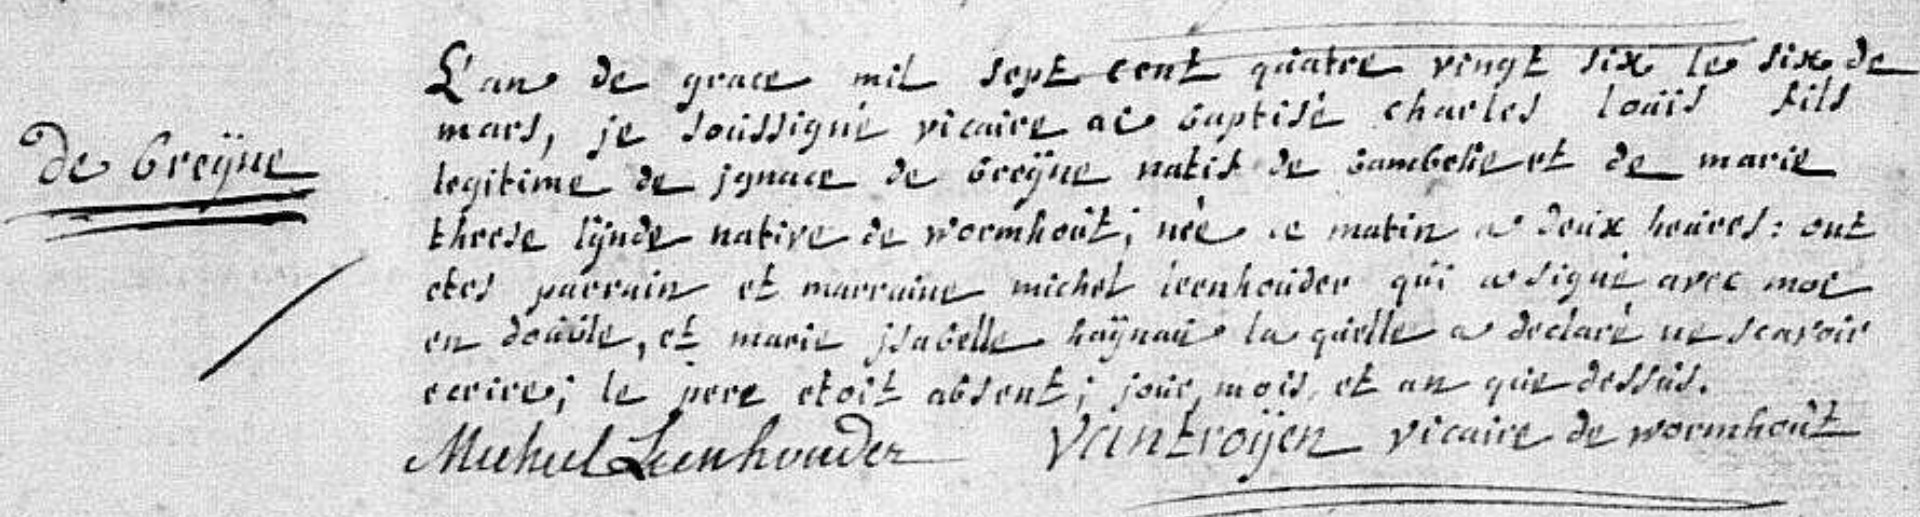 de Greÿne
L'an de grace mil sept cent quatre vingt six le six de
mars, je soussigné vicaire ai baptisé charles loüis fils
legitime de jgnace de Greÿne natif de et de marie
therese lÿnde native de wormhoüt; née ce matin a deux heüres: ont
etes parrain et marraine michel leenhoüder qui a signé avec moi
en doüble, et marie jsabelle haÿnaü la qüelle a declaré ne scavoir
ecrire; le pere etoit absent; joür, mois, et an que dessüs.
Michiel Leenhouder Vantroÿen vicaire de wormhoüt